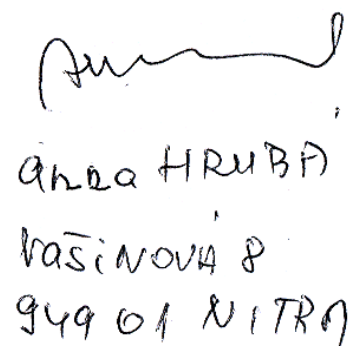 anna HRUBÁ
VAŠiNOVÁ 8
949 01 NITRA